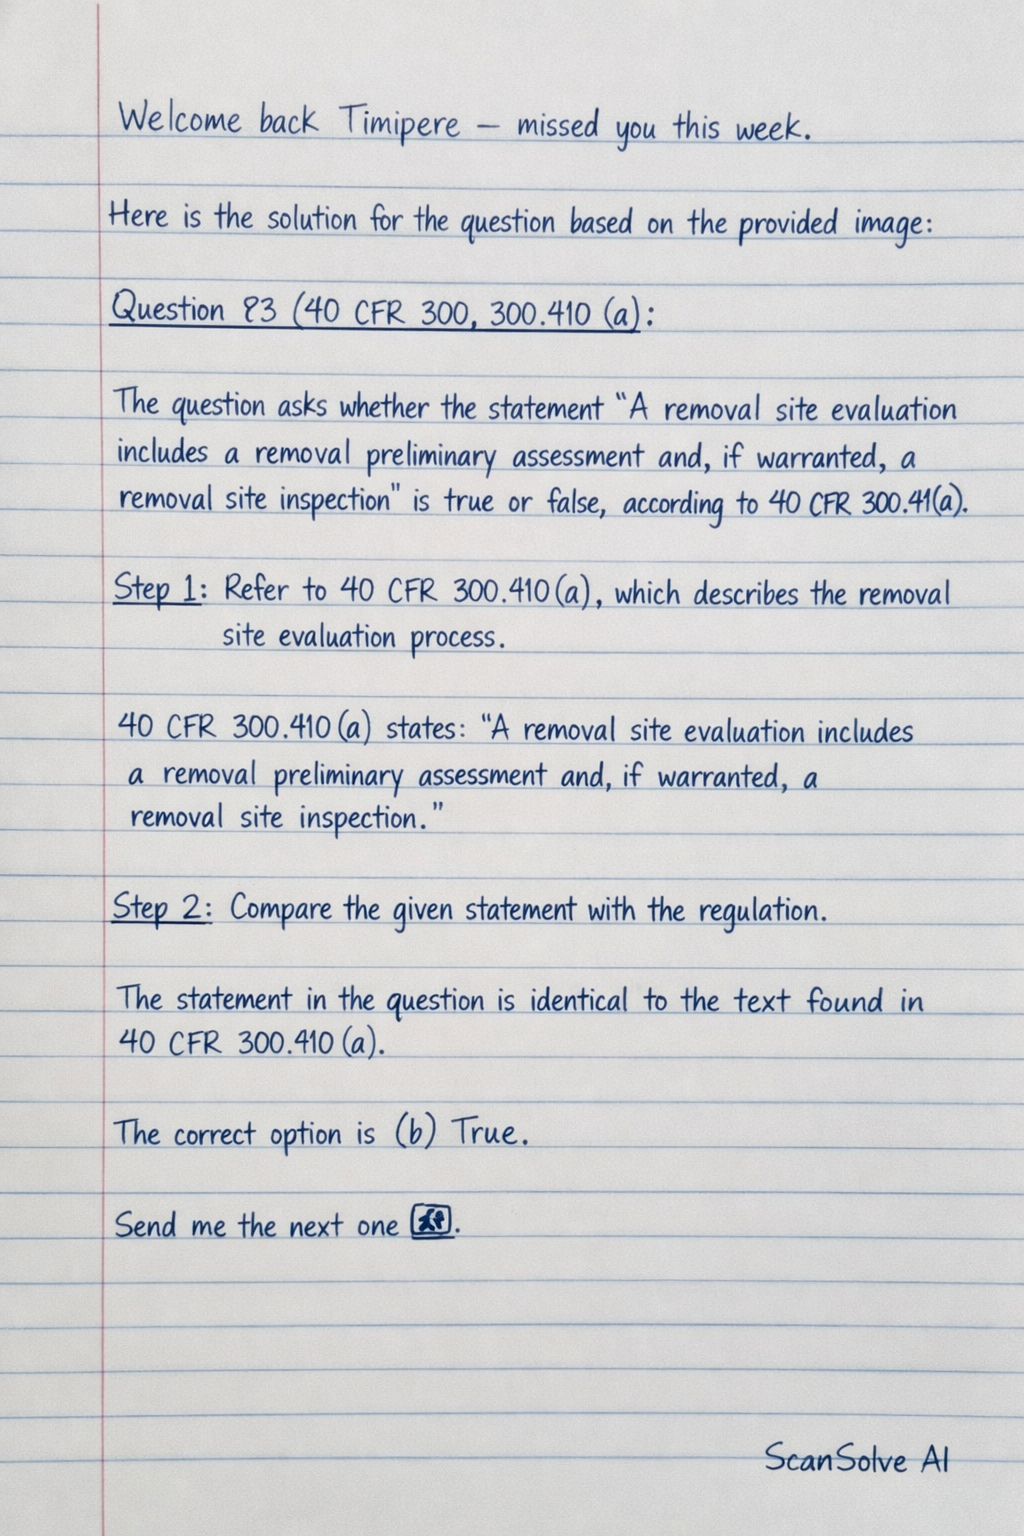 Welcome back Timipere — missed you this week.
Here is the solution for the question based on the provided image:
Question 83 (40 CFR 300, 300.410 (a):
The question asks whether the statement "A removal site evaluation
includes a removal preliminary assessment and, if warranted, a
removal site inspection" is true or false, according to 40 CFR 300.41(a).
Step 1: Refer to 40 CFR 300.410(a), which describes the removal
site evaluation process.
40 CFR 300.410(a) states: "A removal site evaluation includes
a removal preliminary assessment and, if warranted, a
removal site inspection."
Step 2: Compare the given statement with the regulation.
The statement in the question is identical to the text found in
40 CFR 300.410 (a).
The correct option is (b) True.
Send me the next one .
ScanSolve AI